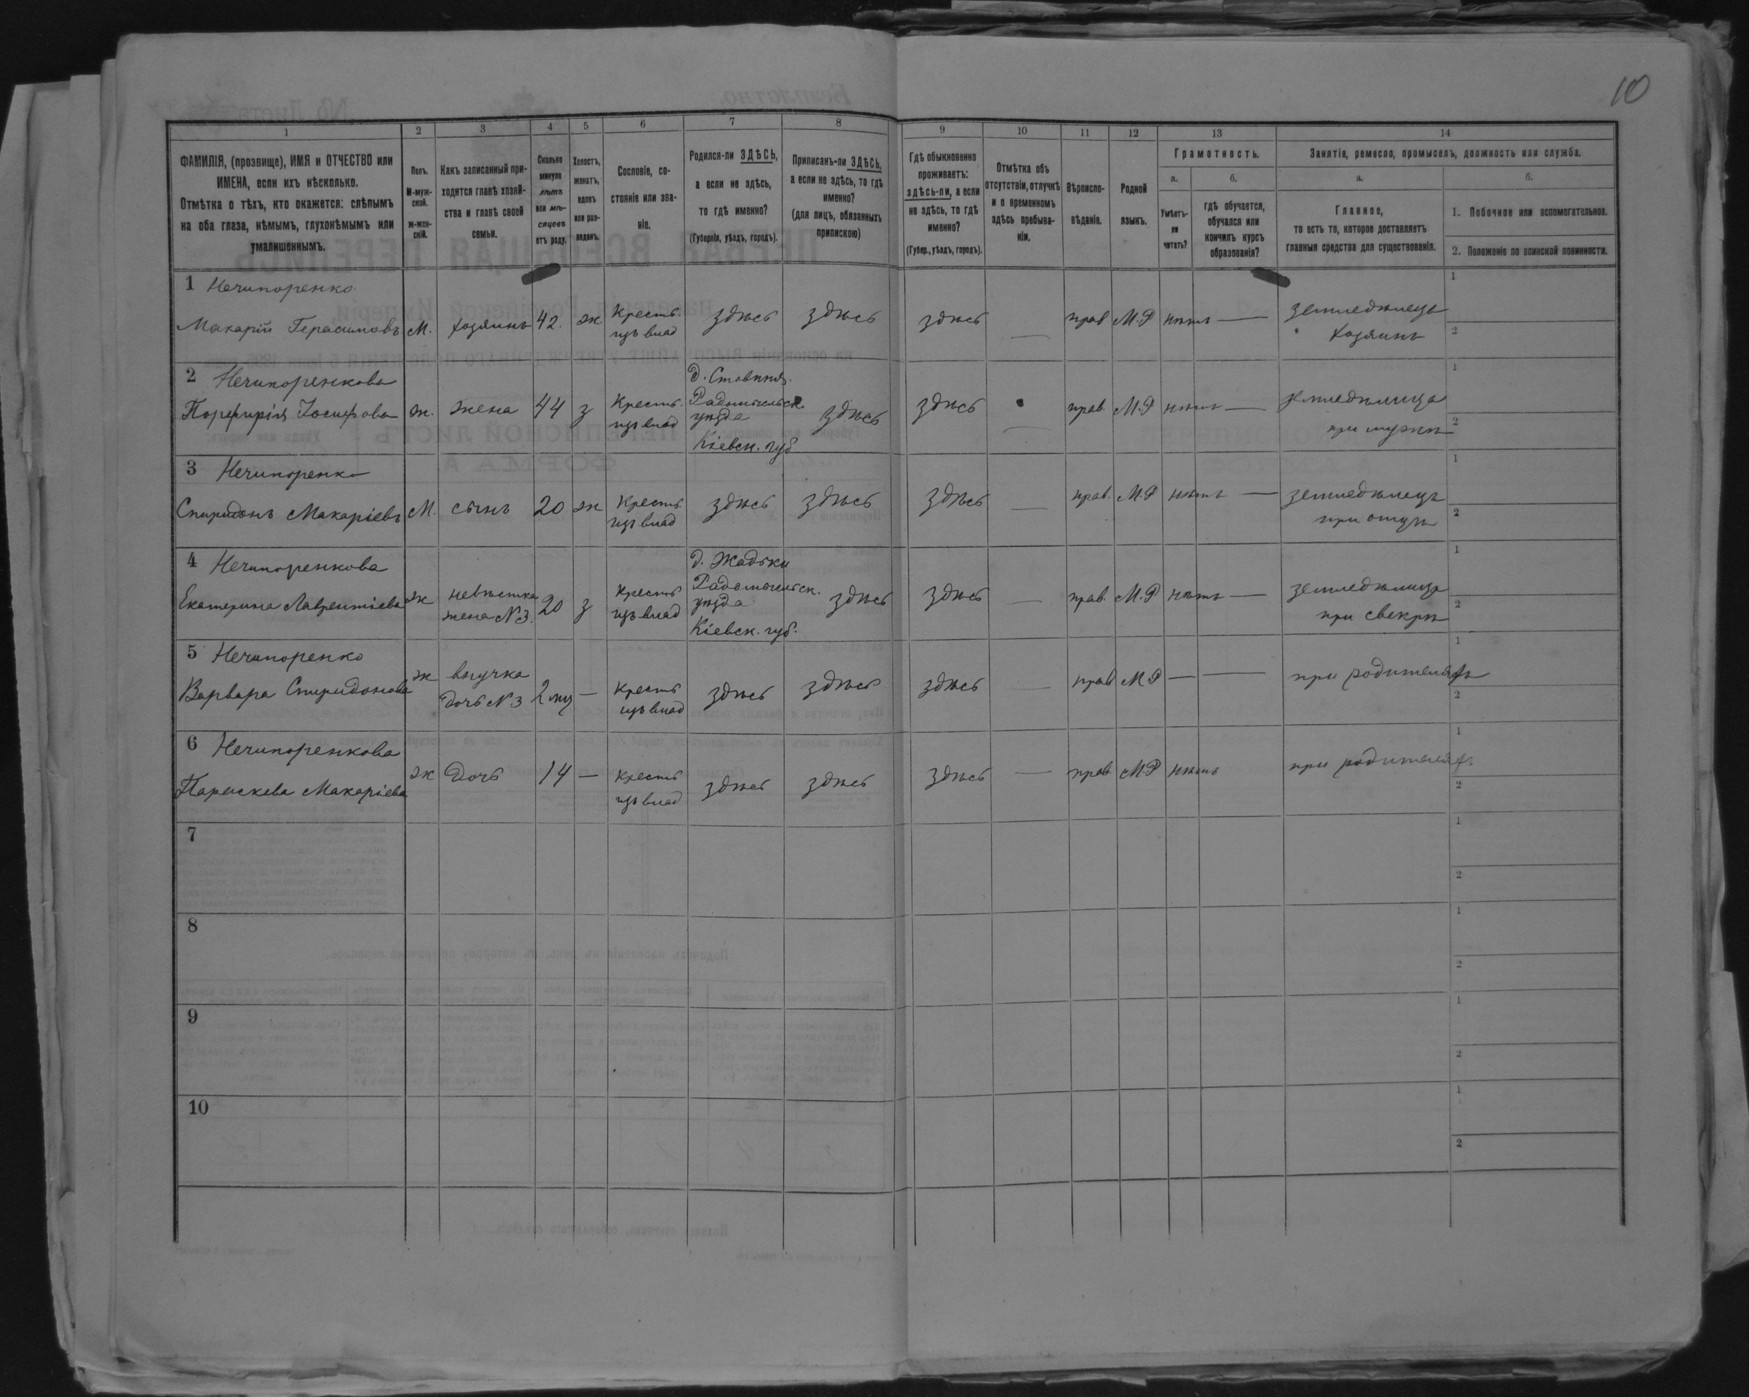 10
1 2 3 4 5 6 7 8 9 10 11 12 13 14
ФАМИЛІЯ, (прозвище), ИМЯ и ОТЧЕСТВО или ИМЕНА, если ихъ нѣсколько.
Отмѣтка о тѣхъ, кто окажется: слѣпымъ на оба глаза, нѣмымъ, глухонѣмымъ или умалишеннымъ.
Полъ.
М-мужской.
ж-женскій.
Какъ записанный приходится главѣ хозяйства и главѣ своей семьи.
Сколько минуло лѣтъ или мѣсяцевъ отъ роду.
Холостъ, женатъ, вдовъ или разведенъ.
Сословіе, состояніе или званіе.
Родился-ли ЗДѢСЬ, а если не здѣсь, то гдѣ именно?
(Губернія, уѣздъ, городъ).
Приписанъ-ли ЗДѢСЬ, а если не здѣсь, то гдѣ именно?
(для лицъ, обязанныхъ припискою)
Гдѣ обыкновенно проживаетъ: здѣсь-ли, а если не здѣсь, то гдѣ именно?
(Губер., уѣздъ, городъ).
Отмѣтка объ отсутствіи, отлучкѣ и о временномъ здѣсь пребываніи.
Вѣроисповѣданіе.
Родной языкъ.
Грамотность.
а.
Умѣетъ-ли читать?
б.
гдѣ обучается, обучался или кончилъ курсъ образованія?
Занятіе, ремесло, промыселъ, должность или служба.
а.
Главное,
то есть то, которое доставляетъ главныя средства для существованія.
б.
1. Побочное или вспомогательное.
2. Положеніе по воинской повинности.
1 Нечипоренко
Макарій Герасимовъ М. хозяинъ 42. ж Крестъ. изъ влад здѣсь здѣсь здѣсь — прав М.Р нѣтъ — земледѣлецъ хозяинъ
2 Нечипоренкова
Порфирія Іосифова ж. жена 44 з Крестъ. изъ влад д. Ставки Радомысльск. уѣзда Кіевск. губ здѣсь здѣсь — прав. М.Р нѣтъ — земледѣлица при мужѣ
3 Нечипоренко
Спиридонъ Макаріевъ М. сынъ 20 ж Крестъ изъ влад здѣсь здѣсь здѣсь — прав. М.Р нѣтъ — земледѣлецъ при отцѣ
4 Нечипоренкова
Екатерина Лаврентіева ж невѣстка жена №3. 20 з Крестъ изъ влад д. Жадьки Радомысльск. уѣзда Кіевск. губ. здѣсь здѣсь — прав. М.Р нѣтъ — земледѣлица при свекрѣ
5 Нечипоренко
Варвара Спиридонова ж внучка дочь №3 — Крестъ изъ влад здѣсь здѣсь здѣсь — прав М.Р — — при родителяхъ
6 Нечипоренкова
Параскева Макаріева ж Дочь 14 — Крестъ изъ влад здѣсь здѣсь здѣсь — прав М.Р нѣтъ при родителях.
7
8
9
10